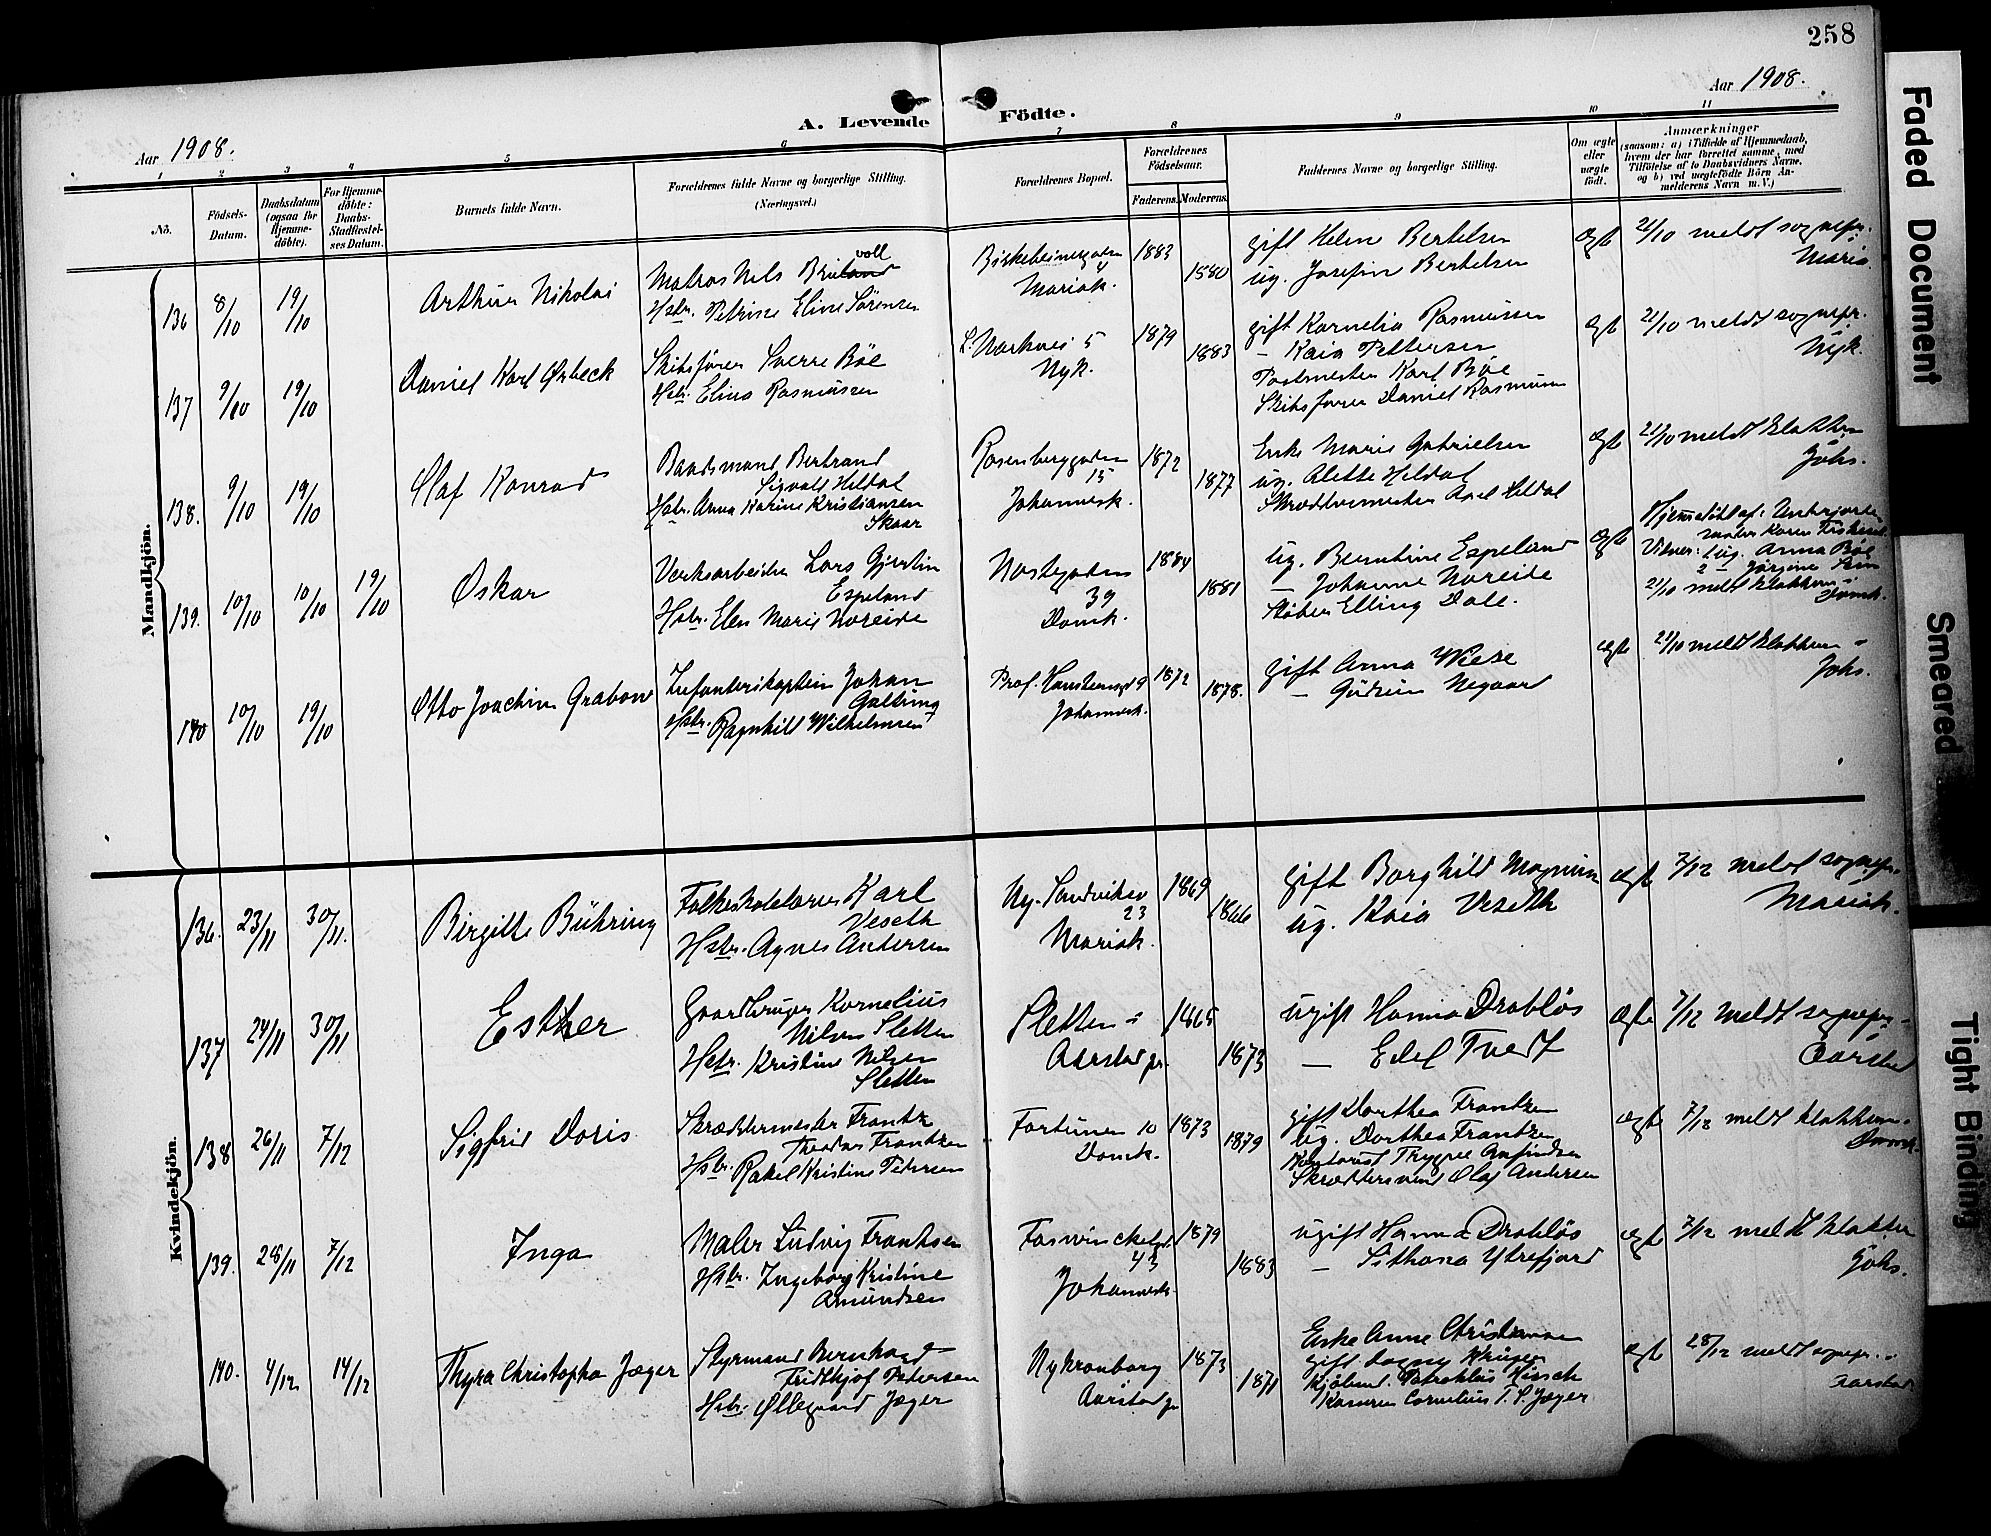 258
Aar 1908.
Aar 1908.
A. Levende Födte.
1 2 3 4 5 6 7 8 9 10 11
No.
Födsels-Datum.
Daabsdatum (ogsaa for Hjemme-döbte).
For Hjemme-döbte: Daabs-Stadfæstel-ses Datum.
Barnets fulde Navn.
Forældrenes fulde Navne og borgerlige Stilling.
(Næringsvei.)
Forældrenes Bopæl.
Forældrenes Födselsaar.
Faderens. Moderens.
Faddernes Navne og borgerlige Stilling.
Om ægte eller uægte födt.
Anmærkninger
(saasom: a) i Tilfælde af Hjemmedaab, hvem der har forrettet samme, med Tilföielse af to Daabsvidners Navne, og b) ved uægtefödte Börn An-melderens Navn m. V.)
Mandkjön.
136 8/10 19/10 Arthur Nikolai
voll
Matros Nils
Hstr. Petrine Eline Sörensen
4
Mariak.
1883 1880
gift Helene Bertelsen
ug. Josefin Bertelsen
ægt
21/10 meldt sognepr.
Maria
137 9/10 19/10 Daniel Karl Ørbeck
Skibsförer Sverre Böe
Hstr. Elina Rasmussen
5
Nyk.
1879 1883
gift Kornelia Rasmussen
— Kaia Pettersen
Postmester Karl Böe
Skibsförer Daniel Rasmussen
ægt
21/10 meldt sognepr.
Nyk.
138. 9/10 19/10 Olaf Konrad
Baadsmand Bertrand
Sigvald Heldal
Hstr. Anna Karine Kristiansen
Skaar
Rosenberggaden
15
Johannesk.
1872 1877
Enke Marie Gabrielsen
ug. Alette Heldal
Skræddermester Axel Heldal
ægt
21/10 meldt klokkeren
Johs.
139. 10/10 10/10 19/10 Oskar
Verksarbeider Lars Gjertin
Espeland
Hstr. Elen Marie Noreide
Nostegaden
39
Domk.
1884 1881
ug. Berntine Espeland
— Johanne Noreide
Støber Elling Dale.
ægt
Hjemmedöbt af:
Vidner: 1 ug. Anna Böe
2 —
21/10 meldt klokkeren i
Domk.
140 10/10 19/10 Otto Joachim Grabow
Infanterikaptein Johan
Galtung
Hstr. Ragnhild Wilhelmsen
Prof. Hansteensgd 9
Johannesk.
1872 1878.
gift Anna Wiese
— Gudrun Negaard
ægte
21/10 meldt klokkeren i
Johs.
Kvindekjön.
136. 23/11 30/11. Birgitte Bühring
Folkeskolelærer Karl
Veseth
Hstr. Agnes Andersen
Ny. Sandviksv
23
Mariak.
1869 1866
gift Borghild Magnussen
ug. Kaia Veseth
ægt
7/12 meldt sognepr.
Mariak.
137 24/11 30/11 Esther
Gaardbruger Kornelius
Nilsen Sletten
Hstr. Kristine Nilsen
Sletten
Sletten i
Aarstad pr.
1865 1873
ugift Hanna Drabløs
— Edel Tvedt
ægte
7/12 meldt sognepr. i
Aarstad
138 26/11 7/12 Sigfrid Doris
Skræddermester Frantz
Theodor Frantzen
Hstr. Rakel Kristine Petersen
Fortunen 10
Domk.
1873 1879
gift Dorthea Frantzen
ug. Dorthea Frantzen
Kontorist Trygve
Skræddersvend Olaf Andersen
ægte
7/12 meldt klokkeren i
Domk.
139. 28/11 7/12 Inga
Maler Ludvig Frantzen
Hstr. Ingeborg Kristine
Amundsen
Fosswinckelgd
43
Johannesk.
1879 1883
ugift Hanna Drabløs
— Sithana Ytrefjord
ægt
7/12 meldt klokker
Johs.
140. 4/12 14/12 Thyra Christopha Jæger
Styrmand Bernhard
Fridthjof Petersen
Hstr. Øllegaard Jæger
Ny Kronborg
Aarstad pr
1873 1871
Enke Anne Christensen
gift Dagny Krüger
Kjøbmd. Patroklus Hirsch
Kasserer Cornelius T. S. Jæger
ægt
28/12 meldt sognepr. i
Aarstad
Faded Document
Smeared
Tight Binding